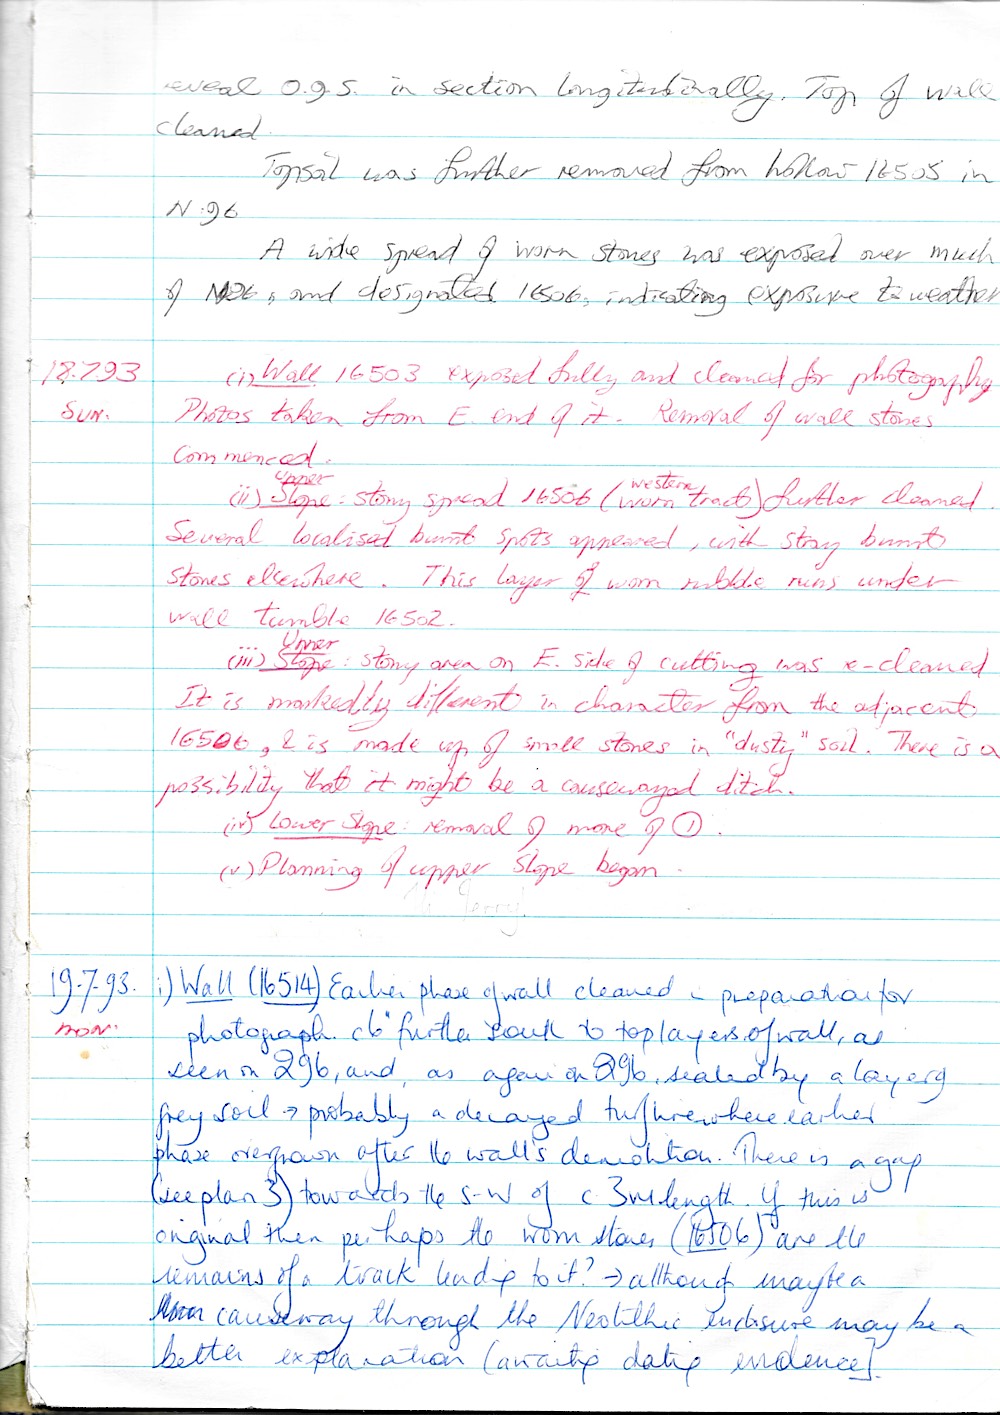 reveal O.g.S. in section longitudinally. Top of wall
cleaned.
Topsoil was further removed from hollow 16505 in
N96
A wide spread of worn stones was exposed over much
of N96, and designated 16506, indicating exposure to weather
18.7.93 (i) Wall 16503 exposed fully and cleaned for photography
SUN. Photos taken from E. end of it. Removal of wall stones
commenced.
(ii) Upper Slope: stony spread 16506 (western worn tract) further cleaned.
Several localised burnt spots appeared, with stray burnt
stones elsewhere. This layer of worn rubble runs under
wall tumble 16502.
(iii) Upper Slope: stony area on E. side of cutting was re-cleaned
It is markedly different in character from the adjacent
16506, & is made up of small stones in "dusty" soil. There is a
possibility that it might be a causewayed ditch.
(iv) Lower Slope: removal of more of ①.
(v) Planning of upper slope began.
19.7.93. i) Wall (16514) Earlier phase of wall cleaned in preparation for
MON. photograph. c6" further south to top layers of wall, as
seen on 296, and, as again on 296, sealed by a layer of
grey soil → probably a decayed turfline where earlier
phase overgrown after the wall's demolition. There is a gap
(see plan 3) towards the S-W of c. 3m length. If this is
original then perhaps the worn stones (16506) are the
remains of a track leading to it? → although maybe a
causeway through the Neolithic enclosure may be a
better explanation (awaiting dating evidence).